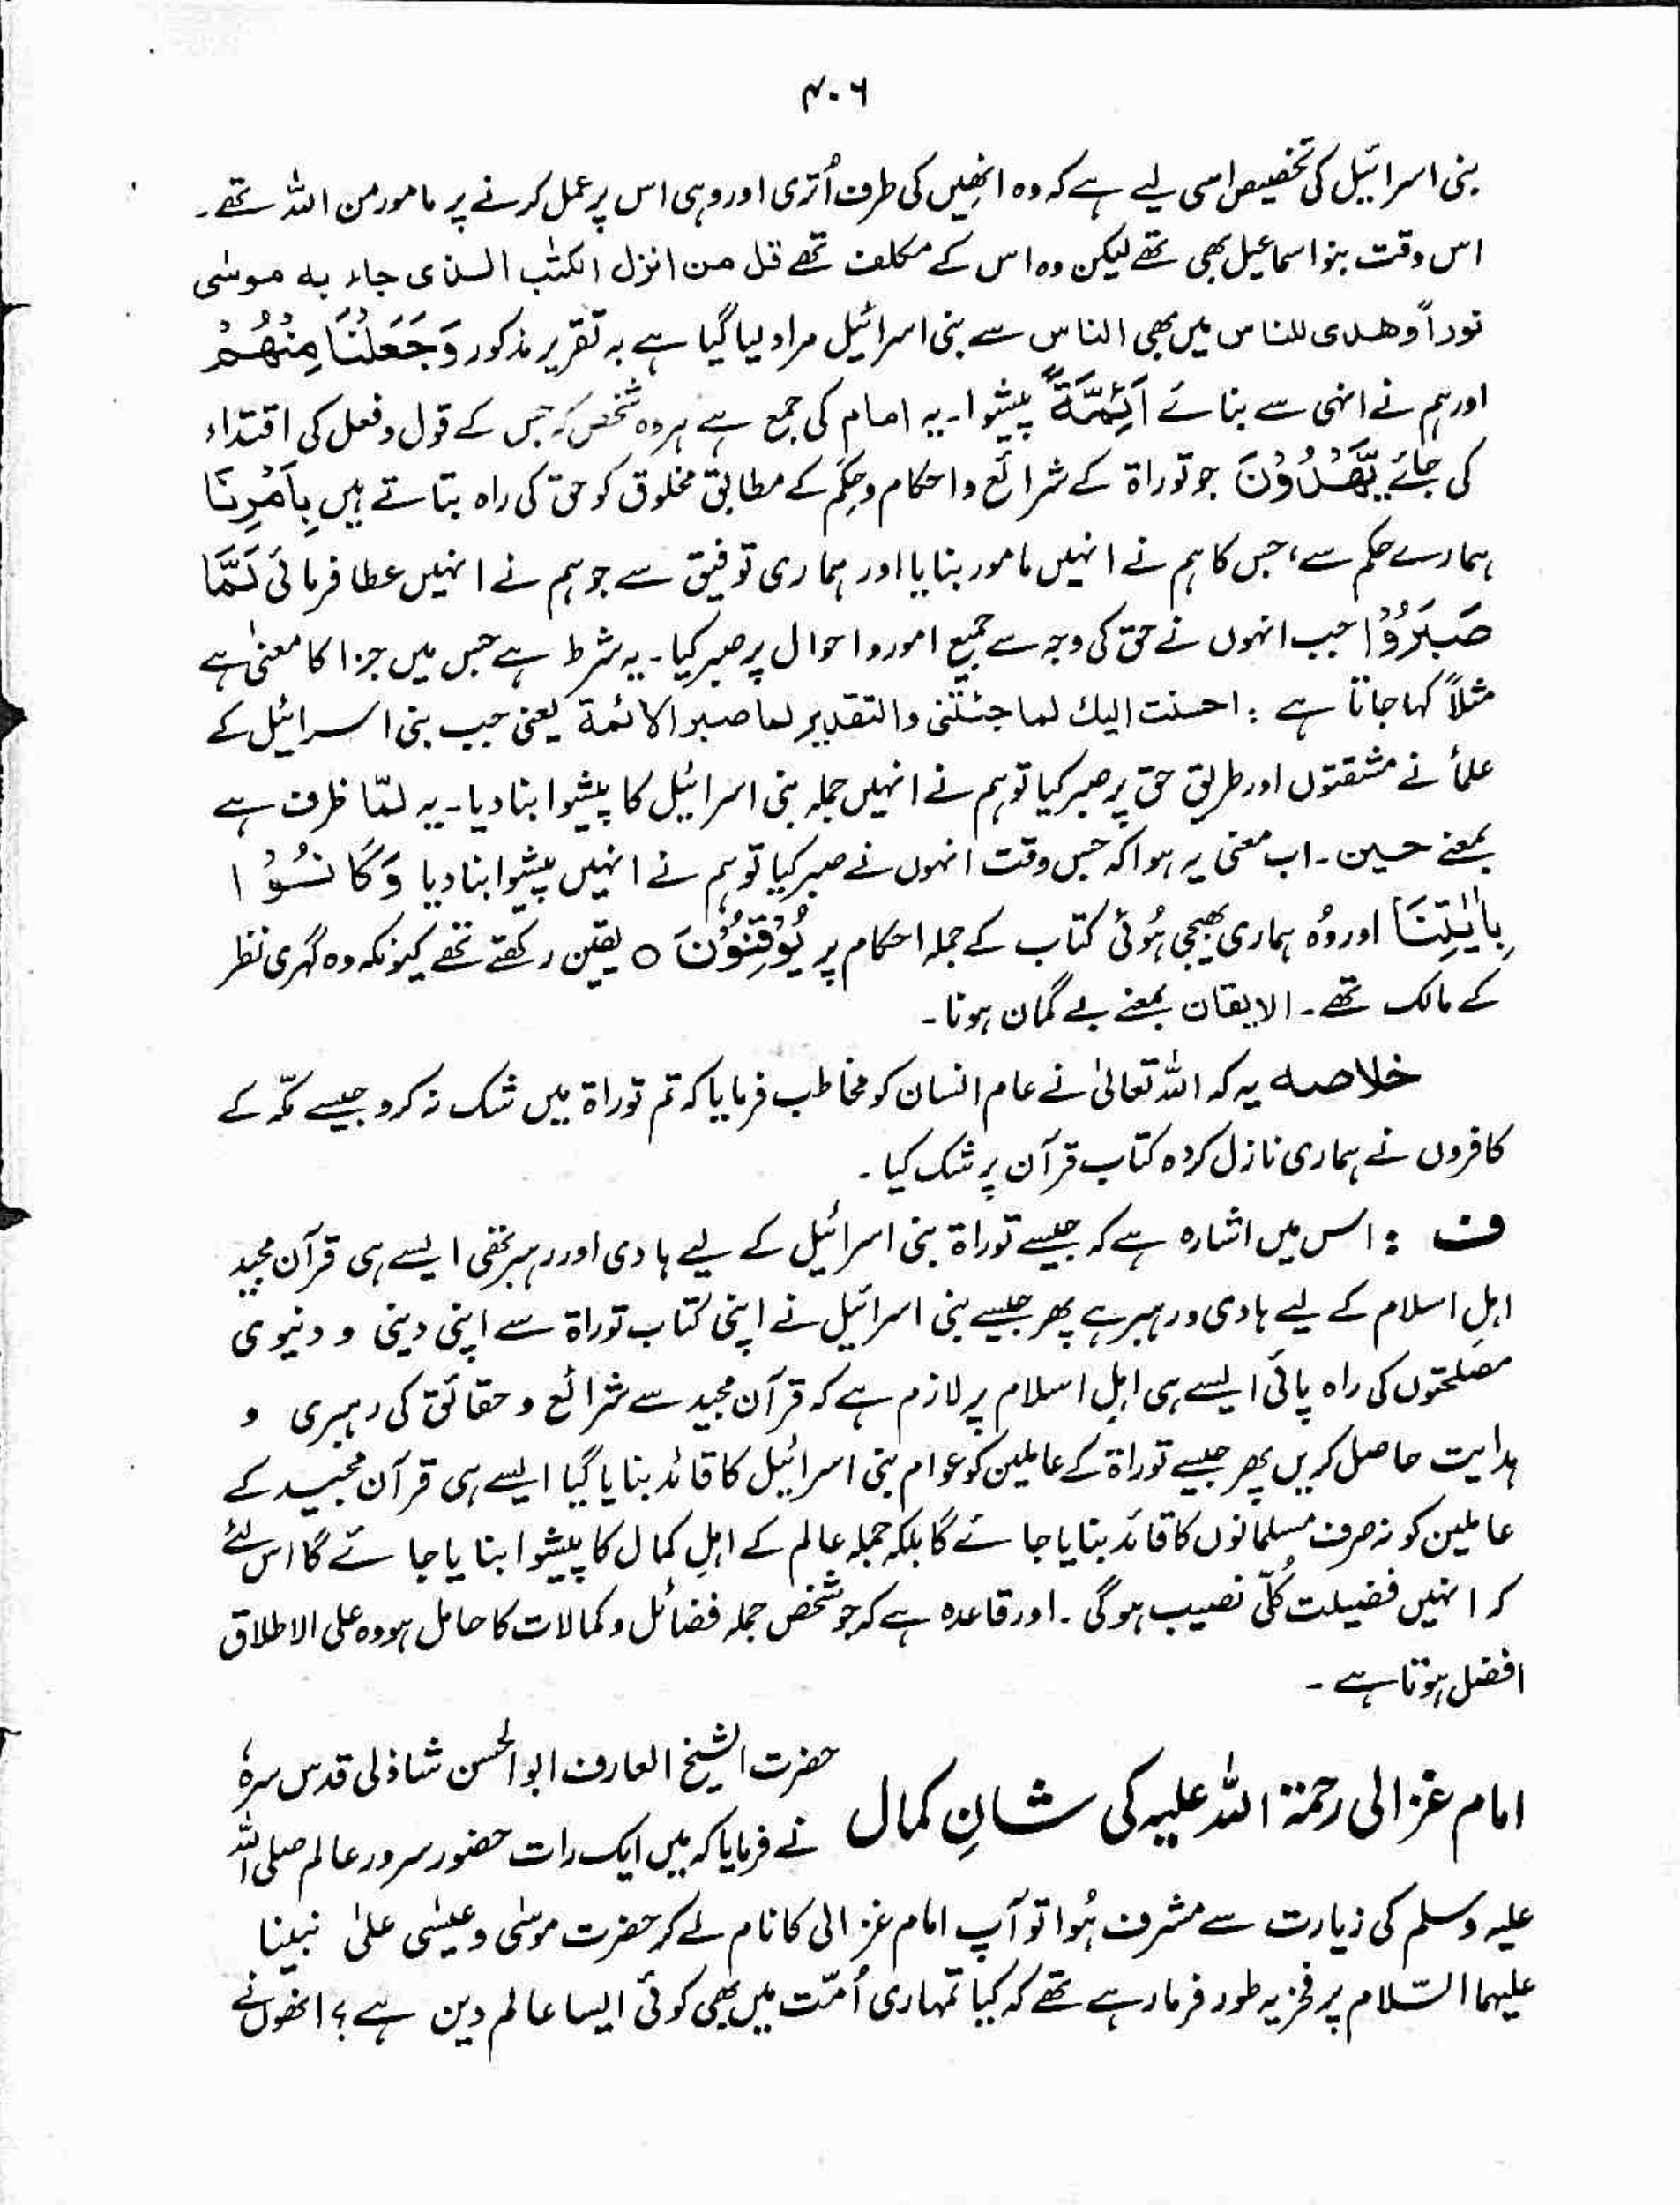 ۴۰۶
بنی اسرائیل کی تخصیص اسی لیے ہے کہ وہ انھیں کی طرف اُتری اور وہی اس پر عمل کرنے پر مامور من اللہ تھے۔
اس وقت بنو اسماعیل بھی تھے لیکن وہ اس کے مکلف تھے قل من انزل الکتٰب الذی جاء به موسٰی
نوراً وھدی للناس میں بھی الناس سے بنی اسرائیل مراد لیا گیا ہے بہ تقریر مذکور وَجَعَلْنَا مِنْهُمْ
اور ہم نے انہی سے بنائے اَئِمَّةً پیشوا۔ یہ امام کی جمع ہے ہر وہ شخص کہ جس کے قول و فعل کی اقتداء
کی جائے یَّهْدُوْنَ جو توراۃ کے شرائع و احکام و حِکَم کے مطابق مخلوق کو حق کی راہ بتاتے ہیں بِاَمْرِنَا
ہمارے حکم سے، جس کا ہم نے انہیں مامور بنایا اور ہماری توفیق سے جو ہم نے انہیں عطا فرمائی لَمَّا
صَبَرُوْا جب انہوں نے حق کی وجہ سے جمیع امور و احوال پر صبر کیا۔ یہ شرط ہے جس میں جزا کا معنیٰ ہے
مثلاً کہا جاتا ہے : احسنت الیك لما جئتنی والتقدیر لما صبر الائمة یعنی جب بنی اسرائیل کے
علمأ نے مشقتوں اور طریق حق پر صبر کیا تو ہم نے انہیں جملہ بنی اسرائیل کا پیشوا بنا دیا۔ یہ لمّا ظرف ہے
بمعنے حسین۔ اب معنی یہ ہوا کہ جس وقت انہوں نے صبر کیا تو ہم نے انہیں پیشوا بنا دیا وَکَانُوْا
بِاٰیٰتِنَا اور وُہ ہماری بھیجی ہُوئی کتاب کے جملہ احکام پر یُوْقِنُوْنَ ○ یقین رکھتے تھے کیونکہ وہ گہری نظر
کے مالک تھے۔ الایقان بمعنے بے گمان ہونا۔
خلاصہ یہ کہ اللہ تعالیٰ نے عام انسان کو مخاطب فرمایا کہ تم توراۃ میں شک نہ کرو جیسے مکّہ کے
کافروں نے ہماری نازل کردہ کتاب قرآن پر شک کیا۔
ف : اس میں اشارہ ہے کہ جیسے توراۃ بنی اسرائیل کے لیے ہادی اور رہبر تھی ایسے ہی قرآن مجید
اہلِ اسلام کے لیے ہادی و رہبر ہے پھر جیسے بنی اسرائیل نے اپنی کتاب توراۃ سے اپنی دینی و دنیوی
مصلحتوں کی راہ پائی ایسے ہی اہلِ اسلام پر لازم ہے کہ قرآن مجید سے شرائع و حقائق کی رہبری و
ہدایت حاصل کریں پھر جیسے توراۃ کے عاملین کو عوام بنی اسرائیل کا قائد بنایا گیا ایسے ہی قرآن مجید کے
عاملین کو نہ صرف مسلمانوں کا قائد بنایا جائے گا بلکہ جملہ عالم کے اہلِ کمال کا پیشوا بنایا جائے گا اس لئے
کہ انہیں فضیلت کُلّی نصیب ہو گی۔ اور قاعدہ ہے کہ جو شخص جملہ فضائل و کمالات کا حامل ہو وہ علی الاطلاق
افضل ہوتا ہے ۔
امام غزالی رحمۃ اللہ علیہ کی شانِ کمال
حضرت الشیخ العارف ابوالحسن شاذلی قدس سرہٗ
نے فرمایا کہ میں ایک رات حضور سرور عالم صلی اللہ
علیہ وسلم کی زیارت سے مشرف ہُوا تو آپ امام غزالی کا نام لے کر حضرت موسٰی و عیسٰی علیٰ نبینا
علیہما السّلام پر فخریہ طور فرما رہے تھے کہ کیا تمہاری اُمّت میں بھی کوئی ایسا عالم دین ہے ؟ انھوں نے